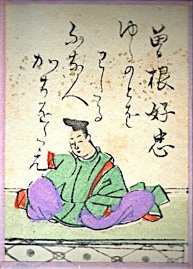 曽根好忠
ゆらのとを
わたる
ふな人
かちをたえ